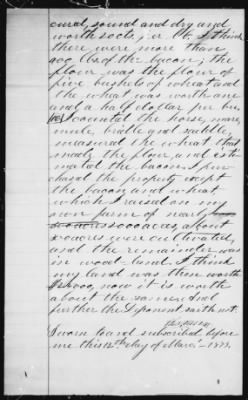 cured, sound and dry and
worth 20 cts. per lb. I think
there were more than
900 lbs of the bacon; the
flour was the flour of
five bushels of wheat and
the wheat was worth one
and a half dollar per bu
I counted the horse, mare,
mule, bridle and saddle,
measured the wheat that
made the flour, and esti-
mated the bacon. I pur-
chased the property except
the bacon and wheat
which I raised on my
own farm of nearly
acres, about
acres were cultivated,
and the remainder was
in wood land. I think
my land was then worth
now it is worth
about the same. And
further the Deponent saith not.
Sworn to and subscribed before
me this 12th day of March 1873.